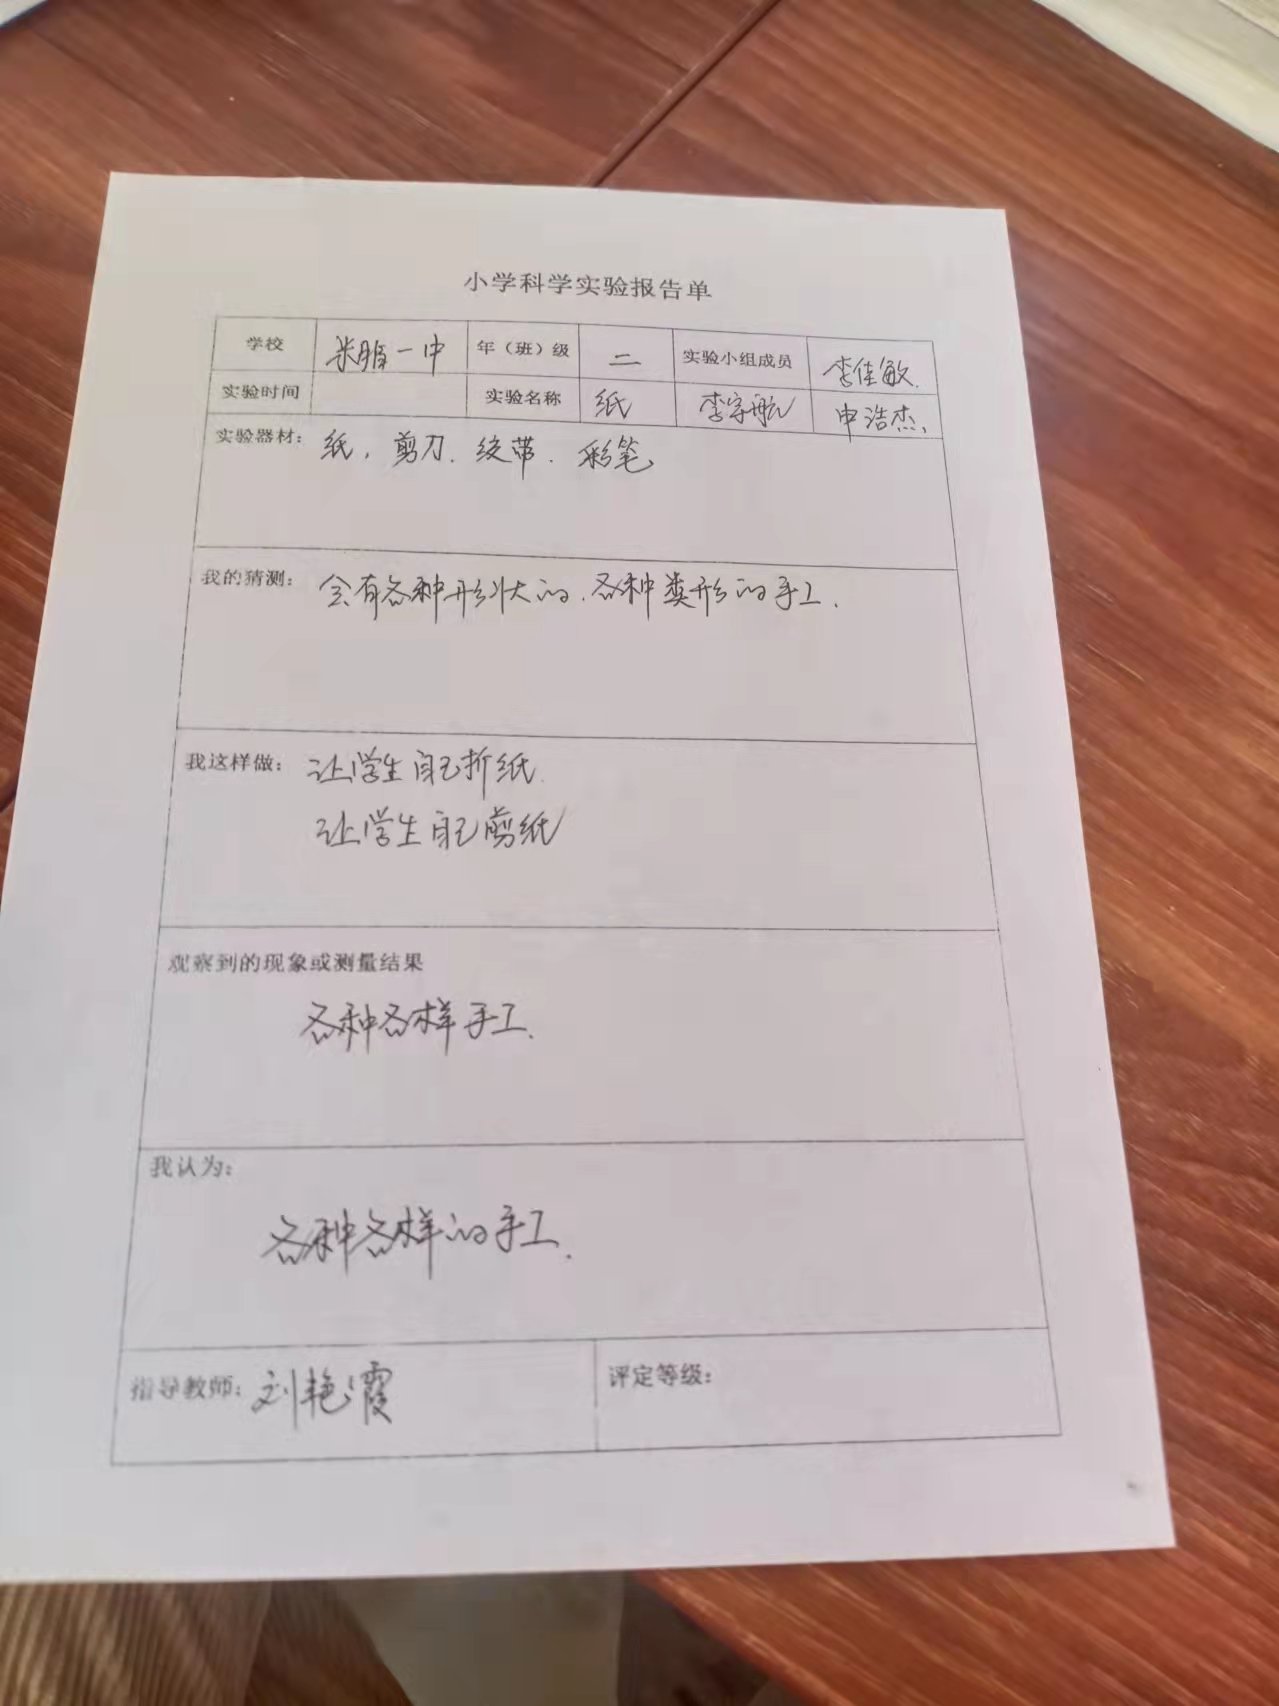 小学科学实验报告单
学校 米脂一中 年(班)级 二 实验小组成员 李佳敏.
实验时间 实验名称 纸 李宇航 申浩杰、
实验器材: 纸, 剪刀. 绞带. 彩笔
我的猜测: 会有各种形状的. 各种类形的手工.
我这样做: 让学生自己折纸.
让学生自己剪纸
观察到的现象或测量结果
各种各样手工.
我认为:
各种各样的手工.
指导教师: 刘艳霞 评定等级: